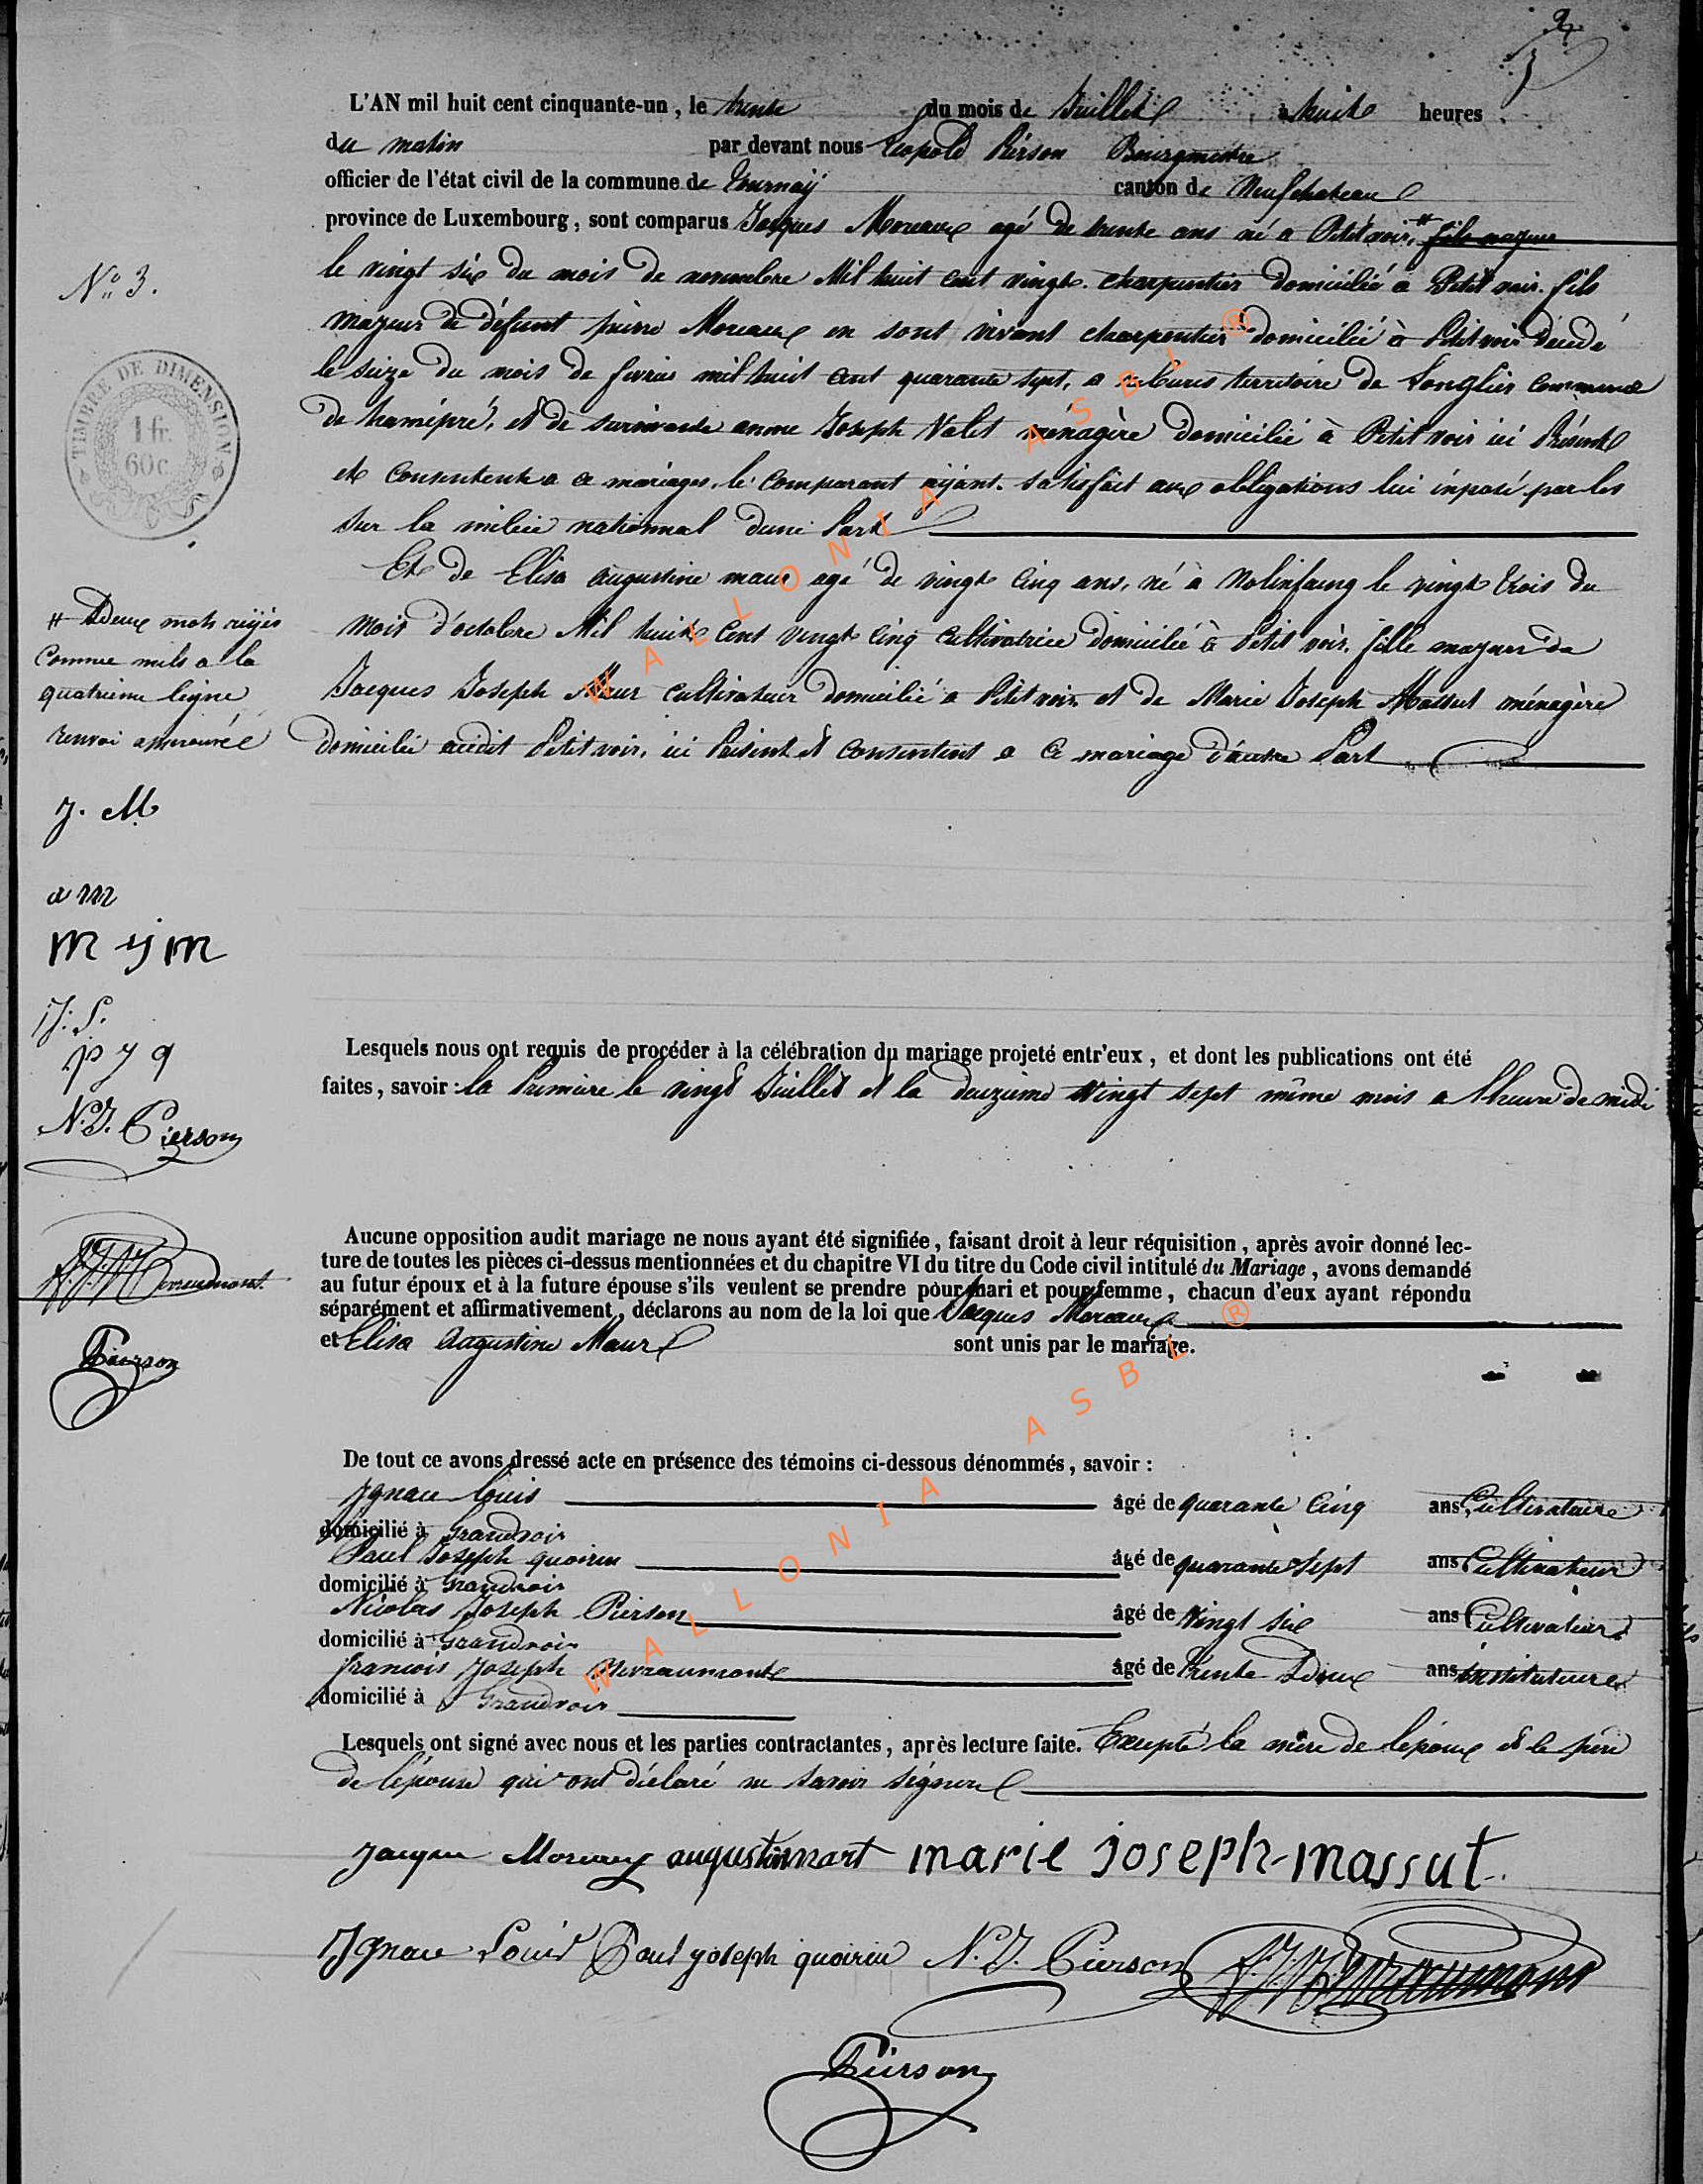 2
3
L'AN mil huit cent cinquante-un, le trente du mois de Juillet à huit heures
du matin par devant nous Léopold Pierson Bourgmestre
officier de l'état civil de la commune de Tournay canton de Neufchateau
province de Luxembourg, sont comparus Jacques Moreaux agé de trente ans né a Petitvoir, # fils majeur
N° 3.
le vingt six du mois de novembre Mil huit cent vingt. charpentier domicilié a Petit voir. fils
majeur de défunt pierre Moreaux en sont vivant charpentier domicilié à Petitvoir décédé
le seize du mois de fevrier mil huit cent quarante sept, a territoire de Longlier commune
de hamipré, et de survivante anne Joseph Valet ménagère domicilié à Petit voir ici Présente
et consentente a ce mariages. le comparant aijant. satisfait aux obligations lui inposé par les
sur la milice national dune Part
TIMBRE DE DIMENSION
1 fr.
60 c.
Et de Elisa augustine maur agé de vingt cinq ans, né à Molinfaing le vingt trois du
mois d'octobre Mil huit Cent vingt cinq cultivatrice domicilée à Petit voir. fille majeur de
Jacques Joseph Maur cultivateur domicilié a Petit voir et de Marie Joseph Massut ménagère
domicilié audit Petit voir, ici Présent et consentent a ce mariage d'autre Part
# Deux mots rayés
comme nuls a la
quatrieme ligne
renvoi approuvée
J. M
a m
m j m
J: L.
p J q
N. J. Pierson
Pierson
Lesquels nous ont requis de procéder à la célébration du mariage projeté entr'eux, et dont les publications ont été
faites, savoir : la Premiere le vingt Juillet et la deuzieme vingt sept même mois a l'heure de midi
Aucune opposition audit mariage ne nous ayant été signifiée, faisant droit à leur réquisition, après avoir donné lec-
ture de toutes les pièces ci-dessus mentionnées et du chapitre VI du titre du Code civil intitulé du Mariage, avons demandé
au futur époux et à la future épouse s'ils veulent se prendre pour mari et pour femme, chacun d'eux ayant répondu
séparément et affirmativement, déclarons au nom de la loi que Jacques Moreaux
et Elisa Augustine Maur sont unis par le mariage.
De tout ce avons dressé acte en présence des témoins ci-dessous dénommés, savoir :
Ignace Louis âgé de quarante Cinq ans, Cultivateur
domicilié à Grandvoir
Paul Joseph quoirin âgé de quarante Sept ans Cultivateur
domicilié à Grandvoir
Nicolas Joseph Pierson âgé de Vingt six ans Cultivateur
domicilié à Grandvoir
francois Joseph Werraumont âgé de trente Deux ans instituteur
domicilié à Grandvoir
Lesquels ont signé avec nous et les parties contractantes, après lecture faite. Excepté la mère de lépoux et le père
de lépouse qui ont déclaré ne savoir signer
Jacque Moreaux augustin mart marie joseph-massut.
Ignace Louis Paul joseph quoirin N. J. Pierson
Pierson
WALLONIA ASBL ®
WALLONIA ASBL ®